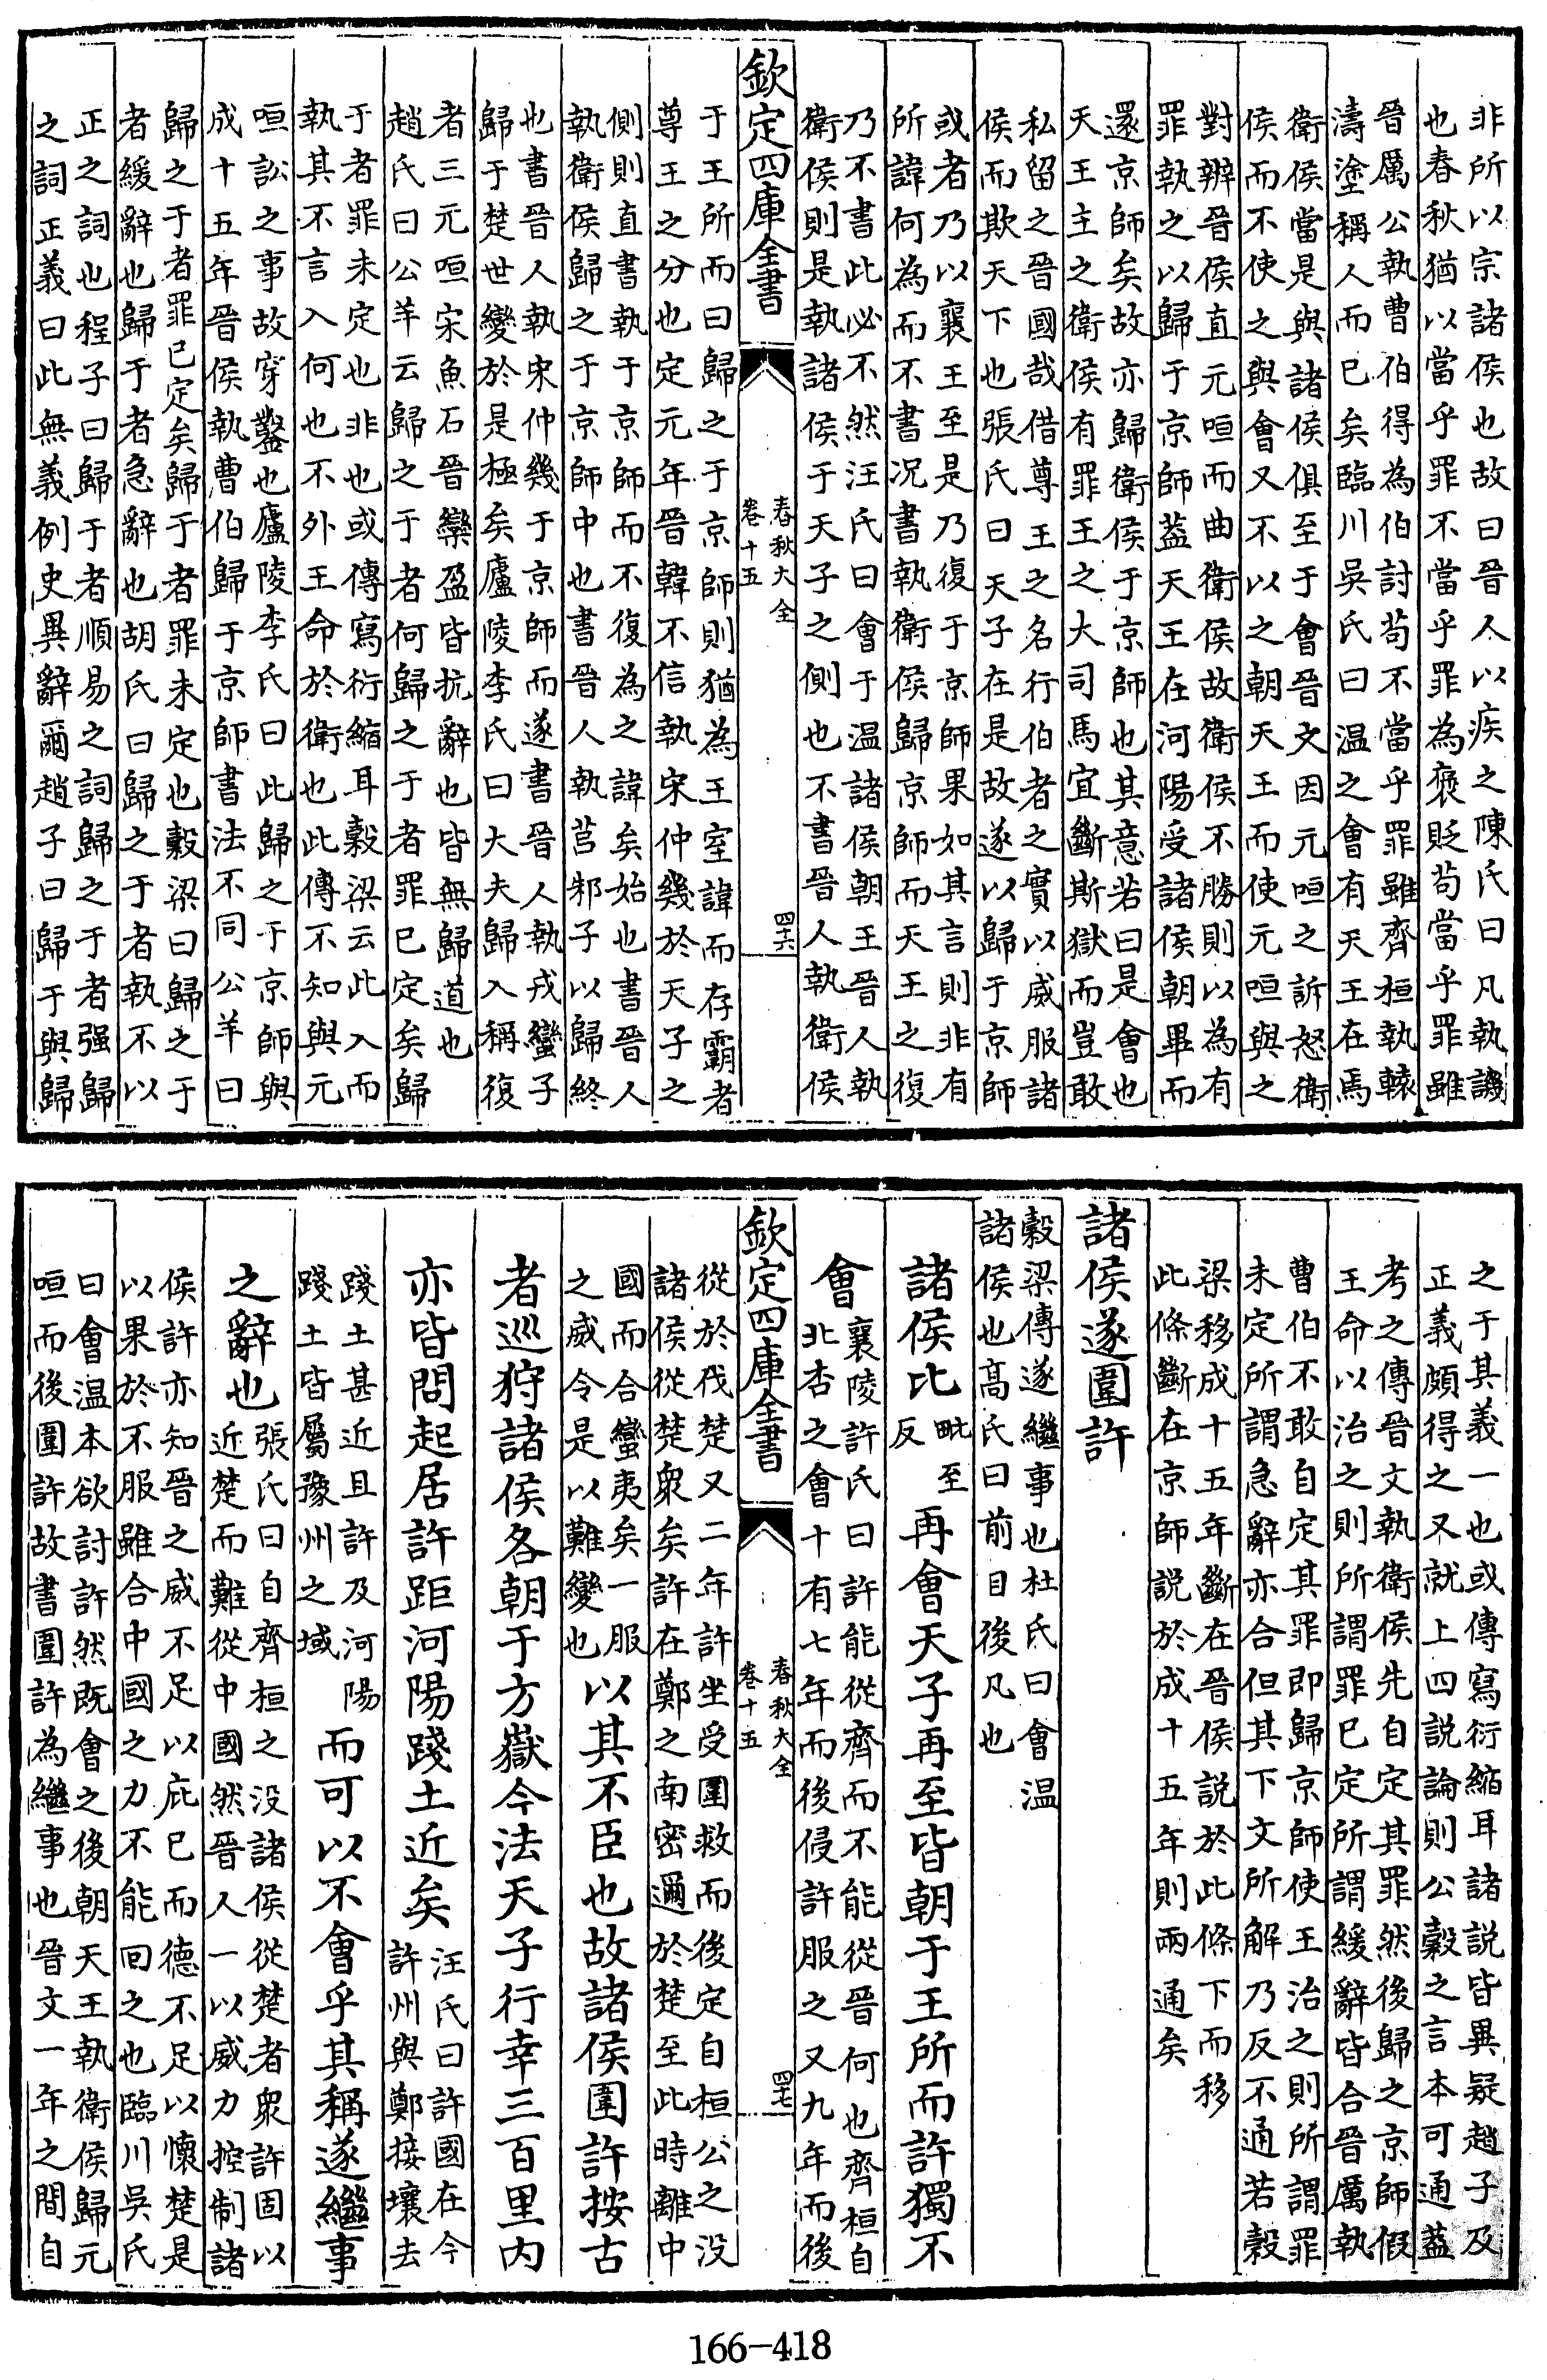 非所以宗諸侯也故曰晉人以疾之陳氏曰凡執譏
也春秋猶以當乎罪不當乎罪為褒貶苟當乎罪雖
晉厲公執曹伯得為伯討苟不當乎罪雖齊桓執轅
濤塗稱人而已矣臨川吳氏曰温之會有天王在焉
衛侯當是與諸侯俱至于會晉文因元咺之訴怒衛
侯而不使之與會又不以之朝天王而使元咺與之
對辨晉侯直元咺而曲衛侯故衛侯不勝則以為有
罪執之以歸于京師葢天王在河陽受諸侯朝畢而
還京師矣故亦歸衛侯于京師也其意若曰是會也
天王主之衛侯有罪王之大司馬宜斷斯獄而豈敢
私留之晉國哉借尊王之名行伯者之實以威服諸
侯而欺天下也張氏曰天子在是故遂以歸于京師
或者乃以襄王至是乃復于京師果如其言則非有
所諱何為而不書况書執衛侯歸京師而天王之復
乃不書此必不然汪氏曰會于温諸侯朝王晉人執
衛侯則是執諸侯于天子之側也不書晉人執衛侯
欽定四庫全書
春秋大全
卷十五
四十六
于王所而曰歸之于京師則猶為王室諱而存霸者
尊王之分也定元年晉韓不信執宋仲幾於天子之
側則直書執于京師而不復為之諱矣始也書晉人
執衛侯歸之于京師中也書晉人執莒邾子以歸終
也書晉人執宋仲幾于京師而遂書晉人執戎蠻子
歸于楚世變於是極矣廬陵李氏曰大夫歸入稱復
者三元咺宋魚石晉欒盈皆抗辭也皆無歸道也
趙氏曰公羊云歸之于者何歸之于者罪已定矣歸
于者罪未定也非也或傳寫衍縮耳穀梁云此入而
執其不言入何也不外王命於衛也此傳不知與元
咺訟之事故穿鑿也廬陵李氏曰此歸之于京師與
成十五年晉侯執曹伯歸于京師書法不同公羊曰
歸之于者罪已定矣歸于者罪未定也穀梁曰歸之于
者緩辭也歸于者急辭也胡氏曰歸之于者執不以
正之詞也程子曰歸于者順易之詞歸之于者强歸
之詞正義曰此無義例史異辭爾趙子曰歸于與歸
之于其義一也或傳寫衍縮耳諸説皆異疑趙子及
正義頗得之又就上四説論則公穀之言本可通葢
考之傳晉文執衛侯先自定其罪然後歸之京師假
王命以治之則所謂罪已定所謂緩辭皆合晉厲執
曹伯不敢自定其罪即歸京師使王治之則所謂罪
未定所謂急辭亦合但其下文所解乃反不通若穀
梁移成十五年斷在晉侯説於此條下而移
此條斷在京師説於成十五年則兩通矣
諸侯遂圍許
穀梁傳遂繼事也杜氏曰會温
諸侯也髙氏曰前目後凡也
諸侯比毗至反再會天子再至皆朝于王所而許獨不
會襄陵許氏曰許能從齊而不能從晉何也齊桓自
北杏之會十有七年而後侵許許服之又九年而後
欽定四庫全書
春秋大全
卷十五
四十七
從於伐楚又二年許坐受圍救而後定自桓公之没
諸侯從楚衆矣許在鄭之南密邇於楚至此時離中
國而合蠻夷矣一服
之威令是以難變也以其不臣也故諸侯圍許按古
者巡狩諸侯各朝于方嶽今法天子行幸三百里内
亦皆問起居許距河陽踐土近矣汪氏曰許國在今
許州與鄭接壤去
踐土甚近且許及河陽
踐土皆屬豫州之域而可以不會乎其稱遂繼事
之辭也張氏曰自齊桓之没諸侯從楚者衆許固以
近楚而難從中國然晉人一以威力控制諸
侯許亦知晉之威不足以庇已而德不足以懷楚是
以果於不服雖合中國之力不能回之也臨川吳氏
曰會温本欲討許然既會之後朝天王執衛侯歸元
咺而後圍許故書圍許為繼事也晉文一年之間自
166-418